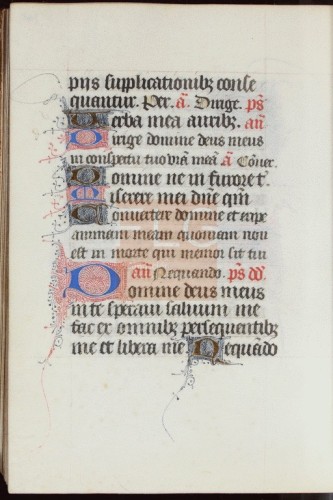 piis supplicationibꝫ conse
quantur. Per. a͞. Dirige. ps͞
Verba mea auribꝫ. an͞
Dirige domine deus meus
in conspectu tuo via͞ mea͞ a͞ Co͞uer.
Domine ne in furore t͞.
Miserere mei d͞ne qm͞
Conuertere domine et eripe
animam meam quoniam non
est in morte qui memor sit tui
an͞ Nequando. ps͞ dd͞.
Domine deus meus
in te speraui saluum me
fac ex omnibꝫ persequentibꝫ
me et libera me Nequa͞do